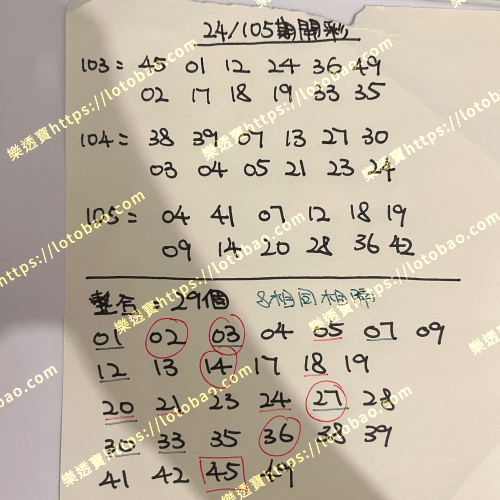 24/105期開彩
103 = 45 01 12 24 36 49
02 17 18 19 33 35
104 = 38 39 07 13 27 30
03 04 05 21 23 24
105 = 04 41 07 12 18 19
09 14 20 28 36 42
整合：29個 8相同相隣
01 02 03 04 05 07 09
12 13 14 17 18 19
20 21 23 24 27 28
30 33 35 36 38 39
41 42 45 49
樂透寶https://lotobao.com